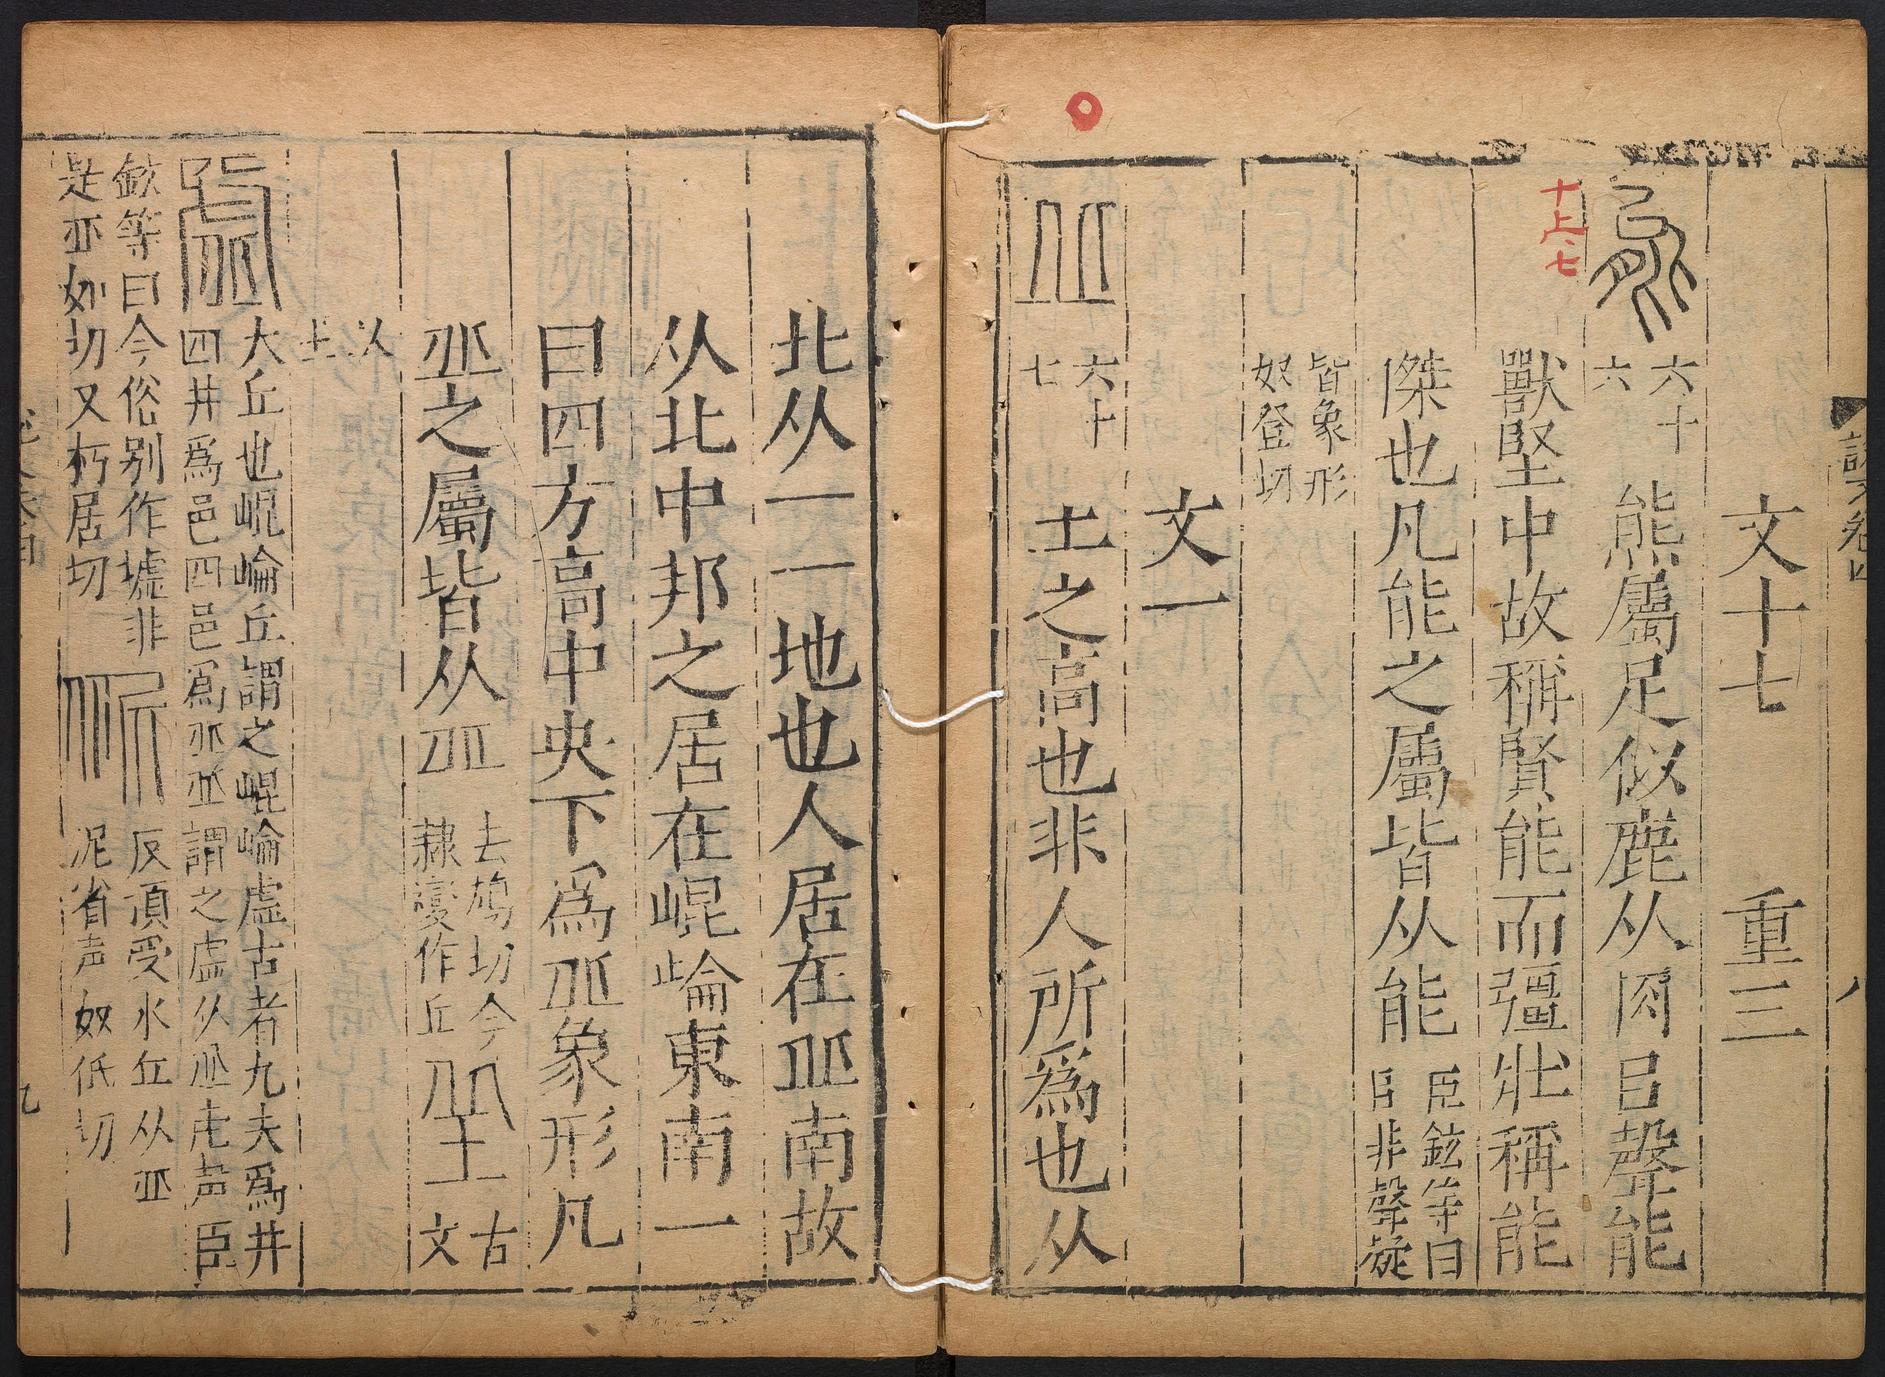 說文卷
文十七　重三
六十六　熊屬足似鹿从肉㠯聲能
十上七
獸堅中故稱賢能而彊壯稱能
傑也凡能之屬皆从能　臣鉉等曰㠯非聲疑
皆象形奴登切
文一
六十七　土之高也非人所爲也从
北从一一地也人居在丠南故
从北中邦之居在崐崘東南一
曰四方高中央下爲丠象形凡
丠之屬皆从丠　去鳩切今隸變作丘　古文
从土
大丘也崐崘丘謂之崐崘虛古者九夫爲井
四井爲邑四邑爲丠丠謂之虛从丠虍声臣
鉉等曰今俗别作墟非　反頂受水丘从丠
是丠如切又朽居切　泥省声奴低切
九